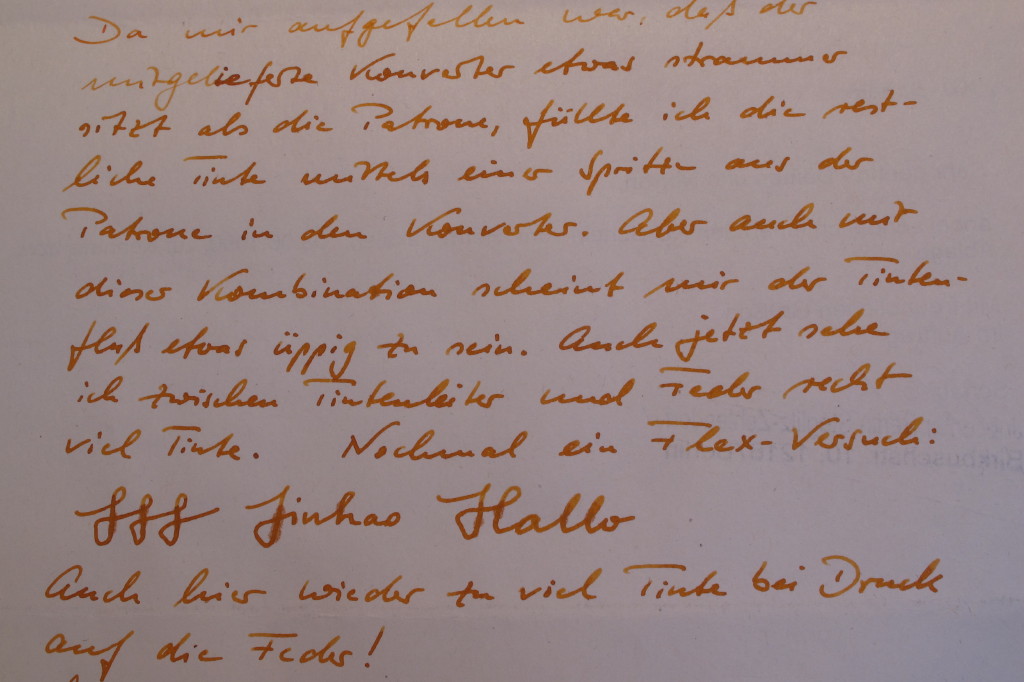 Da mir aufgefallen war, daß der
mitgelieferte Konverter etwas strammer
sitzt als die Patrone, füllte ich die rest-
liche Tinte mittels einer Spritze aus der
Patrone in den Konverter. Aber auch mit
dieser Kombination scheint mir der Tinten-
fluß etwas üppig zu sein. Auch jetzt sehe
ich zwischen Tintenleiter und Feder recht
viel Tinte. Nochmal ein Flex-Versuch:
Jinhao Hallo
Auch hier wieder zu viel Tinte bei Druck
auf die Feder!